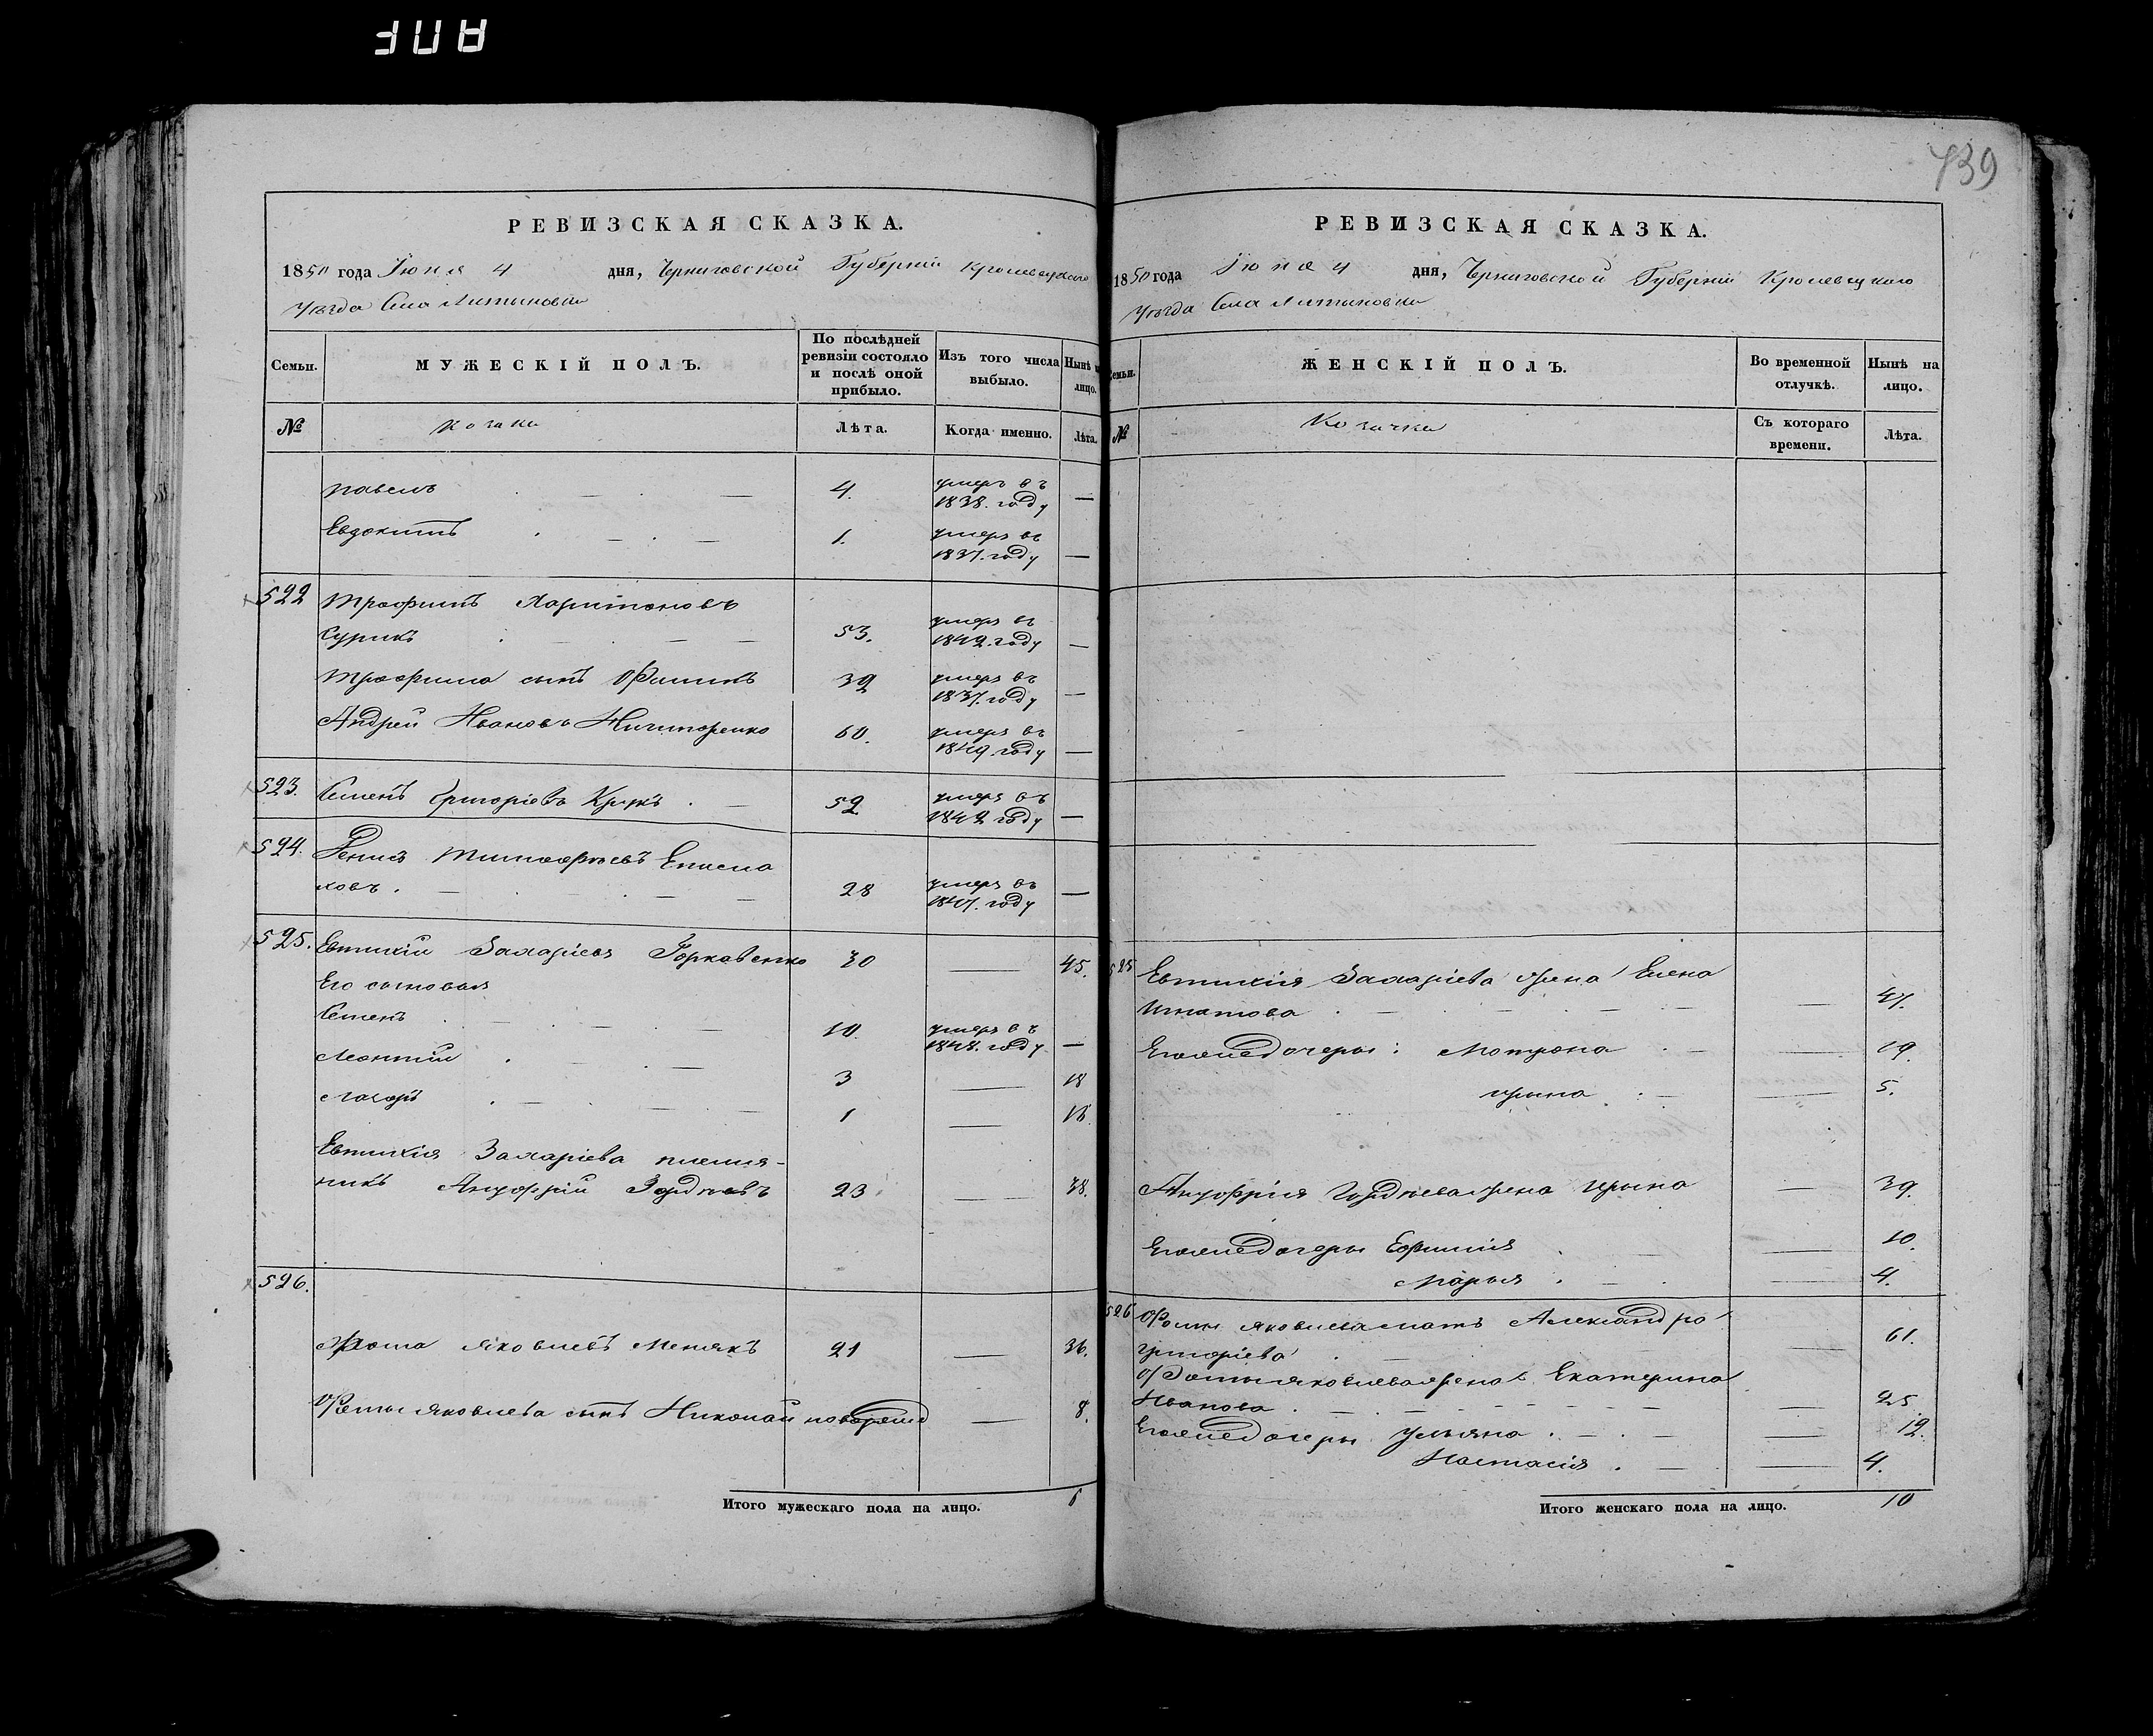 739
РЕВИЗСКАЯ СКАЗКА.
1850 года Іюня 4 дня, Черниговской Губерніи Кролевецкаго
Уѣзда Села Литвиновки
Семьи. МУЖЕСКІЙ ПОЛЪ. По послѣдней ревизіи состояло и послѣ оной прибыло. Изъ того числа выбыло. Нынѣ на лицо.
№ Козаки Лѣта. Когда именно. Лѣта.
Павелъ 4. умеръ въ 1838. году —
Евдокимъ 1. умеръ въ 1837. году —
522 Трофимъ Харитоновъ
Сурикъ 53. умеръ въ 1842. году —
Трофима сынъ Филипъ 32 умеръ въ 1837. году —
Андрей Ивановъ Ничипоренко 60. умеръ въ 1849. году —
523. Семенъ Григоріевъ Крукъ 52 умеръ въ 1842 году —
524. Денисъ Тимофѣевъ Еписма
ховъ. 28 умеръ въ 1847. году —
525. Евтихій Захаріевъ Горкавенко 30 — 45.
Его сыновья
Семенъ 10. умеръ въ 1848. году —
Леонтій 3 — 18
Назаръ 1 — 16.
Евтихія Захаріева племян-
никъ Ануфрій Гордѣевъ 23 — 38.
526.
Фома Яковлевъ Менякъ 21 — 36.
Фомы Яковлева сынъ Николай новорожд — 8.
Итого мужескаго пола на лицо. 6
РЕВИЗСКАЯ СКАЗКА.
1850 года Іюня 4 дня, Черниговской Губерніи Кролевецкаго
Уѣзда Села Литвиновки
Семьи. ЖЕНСКІЙ ПОЛЪ. Во временной отлучкѣ. Нынѣ на лицо.
№ Козачки Съ котораго времени. Лѣта.
525 Евтихія Захаріева жена Елена
Игнатова — 47.
Его же дочеры: Мотрона — 19.
Ирына — 5.
Ануфрія Гордѣева жена Ирына — 39.
Его же дочеры Ефимія — 10.
Марья — 4.
526 Фомы Яковлева мать Александра
Григоріева — 61.
Фомы Яковлева жена Екатерина
Иванова — 25.
Его же дочеры Ульяна — 12.
Настасія — 4.
Итого женскаго пола на лицо. 10